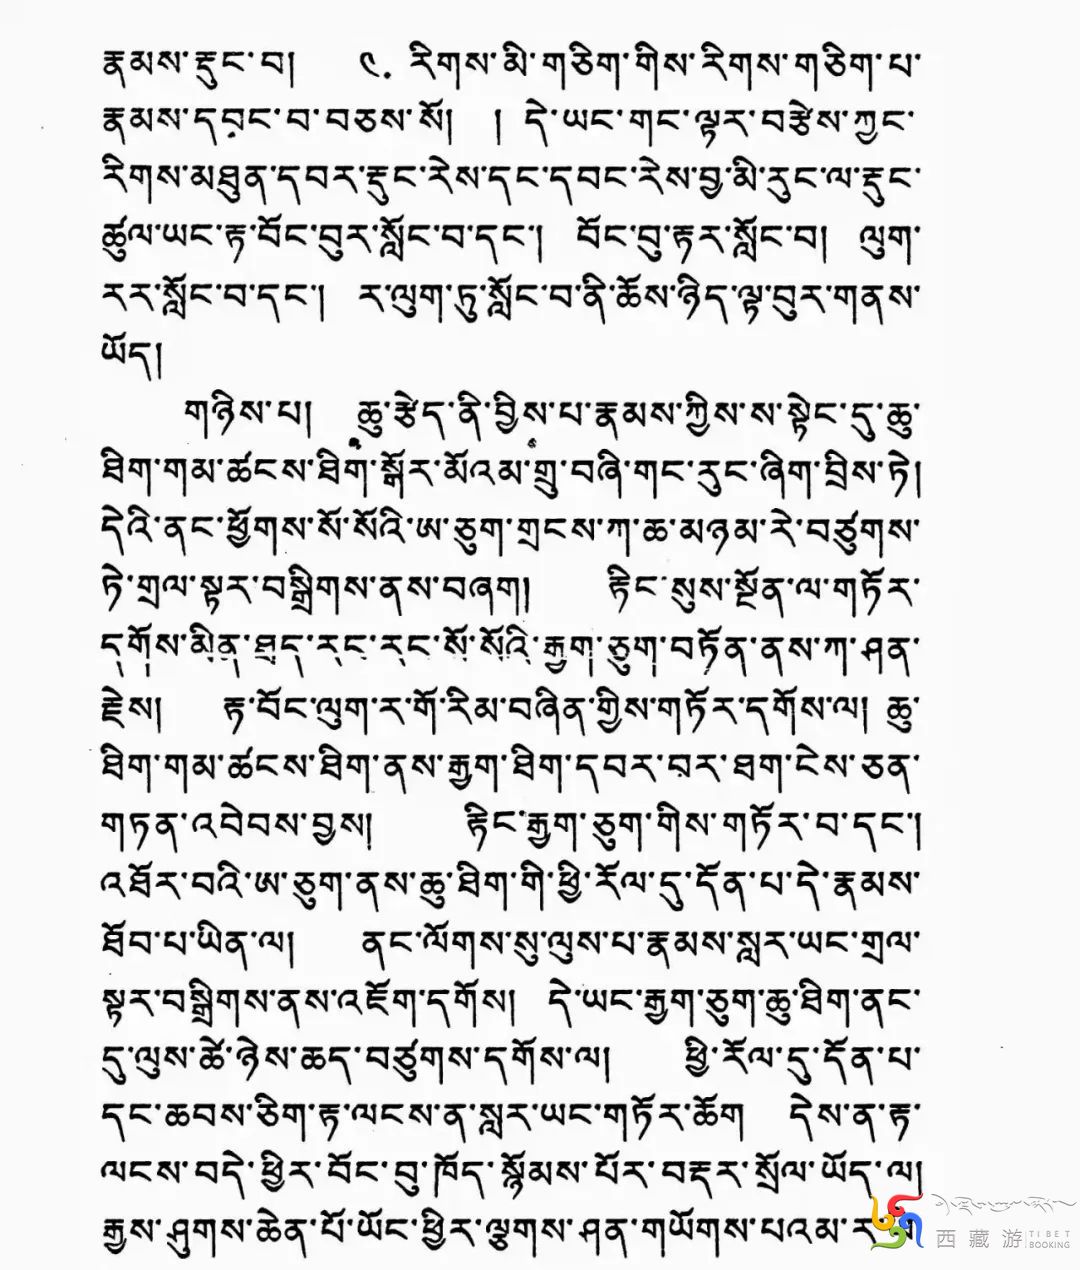 རྣམས་རྡུང་བ། ༩. རིགས་མི་གཅིག་གིས་རིགས་གཅིག་པ་
རྣམས་དབང་བ་བཅས་སོ། ། དེ་ཡང་གང་ལྟར་བརྩེས་ཀྱང་
རིགས་མཐུན་དབར་རྡུང་རེས་དང་དབང་རེས་བྱ་མི་རུང་ལ་རྡུང་
ཚུལ་ཡང་རྟ་བོང་བུར་སློང་བ་དང་། བོང་བུ་རྟར་སློང་བ། ལུག་
རར་སློང་བ་དང་། ར་ལུག་ཏུ་སློང་བ་ནི་ཆོས་ཉིད་ལྟ་བུར་གནས་
ཡོད།
གཉིས་པ། ཆུ་རྩེད་ནི་བྱིས་པ་རྣམས་ཀྱིས་ས་སྟེང་དུ་ཆུ་
ཐིག་གམ་ཚངས་ཐིག་སྒོར་མོའམ་གྲུ་བཞི་གང་རུང་ཞིག་བྲིས་ཏེ།
དེའི་ནང་ཕྱོགས་སོ་སོའི་ཨ་ཅུག་གྲངས་ཀ་ཆ་མཉམ་རེ་བཙུགས་
ཏེ་གྲལ་སྟར་བསྒྲིགས་ནས་བཞག། རྟིང་སུས་སྔོན་ལ་གཏོར་
དགོས་མིན་ཐད་རང་རང་སོ་སོའི་རྒྱག་ཅུག་བཏོན་ནས་ཀ་ཤན་
རྗེས། རྟ་བོང་ལུག་ར་གོ་རིམ་བཞིན་གྱིས་གཏོར་དགོས་ལ། ཆུ་
ཐིག་གམ་ཚངས་ཐིག་ནས་རྒྱག་ཐིག་དབར་བར་ཐག་ངེས་ཅན་
གཏན་འབེབས་བྱས། རྟིང་རྒྱག་ཅུག་གིས་གཏོར་བ་དང་།
འཐོར་བའི་ཨ་ཅུག་ནས་ཆུ་ཐིག་གི་ཕྱི་རོལ་དུ་དོན་པ་དེ་རྣམས་
ཐོབ་པ་ཡིན་ལ། ནང་ལོགས་སུ་ལུས་པ་རྣམས་སླར་ཡང་གྲལ་
སྟར་བསྒྲིགས་ནས་འཇོག་དགོས། དེ་ཡང་རྒྱག་ཅུག་ཆུ་ཐིག་ནང་
དུ་ལུས་ཚེ་ཉེས་ཆད་བཙུགས་དགོས་ལ། ཕྱི་རོལ་དུ་དོན་པ་
དང་ཆབས་ཅིག་རྟ་ལངས་ན་སླར་ཡང་གཏོར་ཆོག དེས་ན་རྟ་
ལངས་བདེ་ཕྱིར་བོང་བུ་ཁོད་སྙོམས་པོར་བརྡར་སྲོལ་ཡོད་ལ།
རྒྱས་ཤུགས་ཆེན་པོ་ཡོང་ཕྱིར་ལྕགས་ཤན་གཡོགས་པའམ་ར
西藏游 TIBET BOOKING